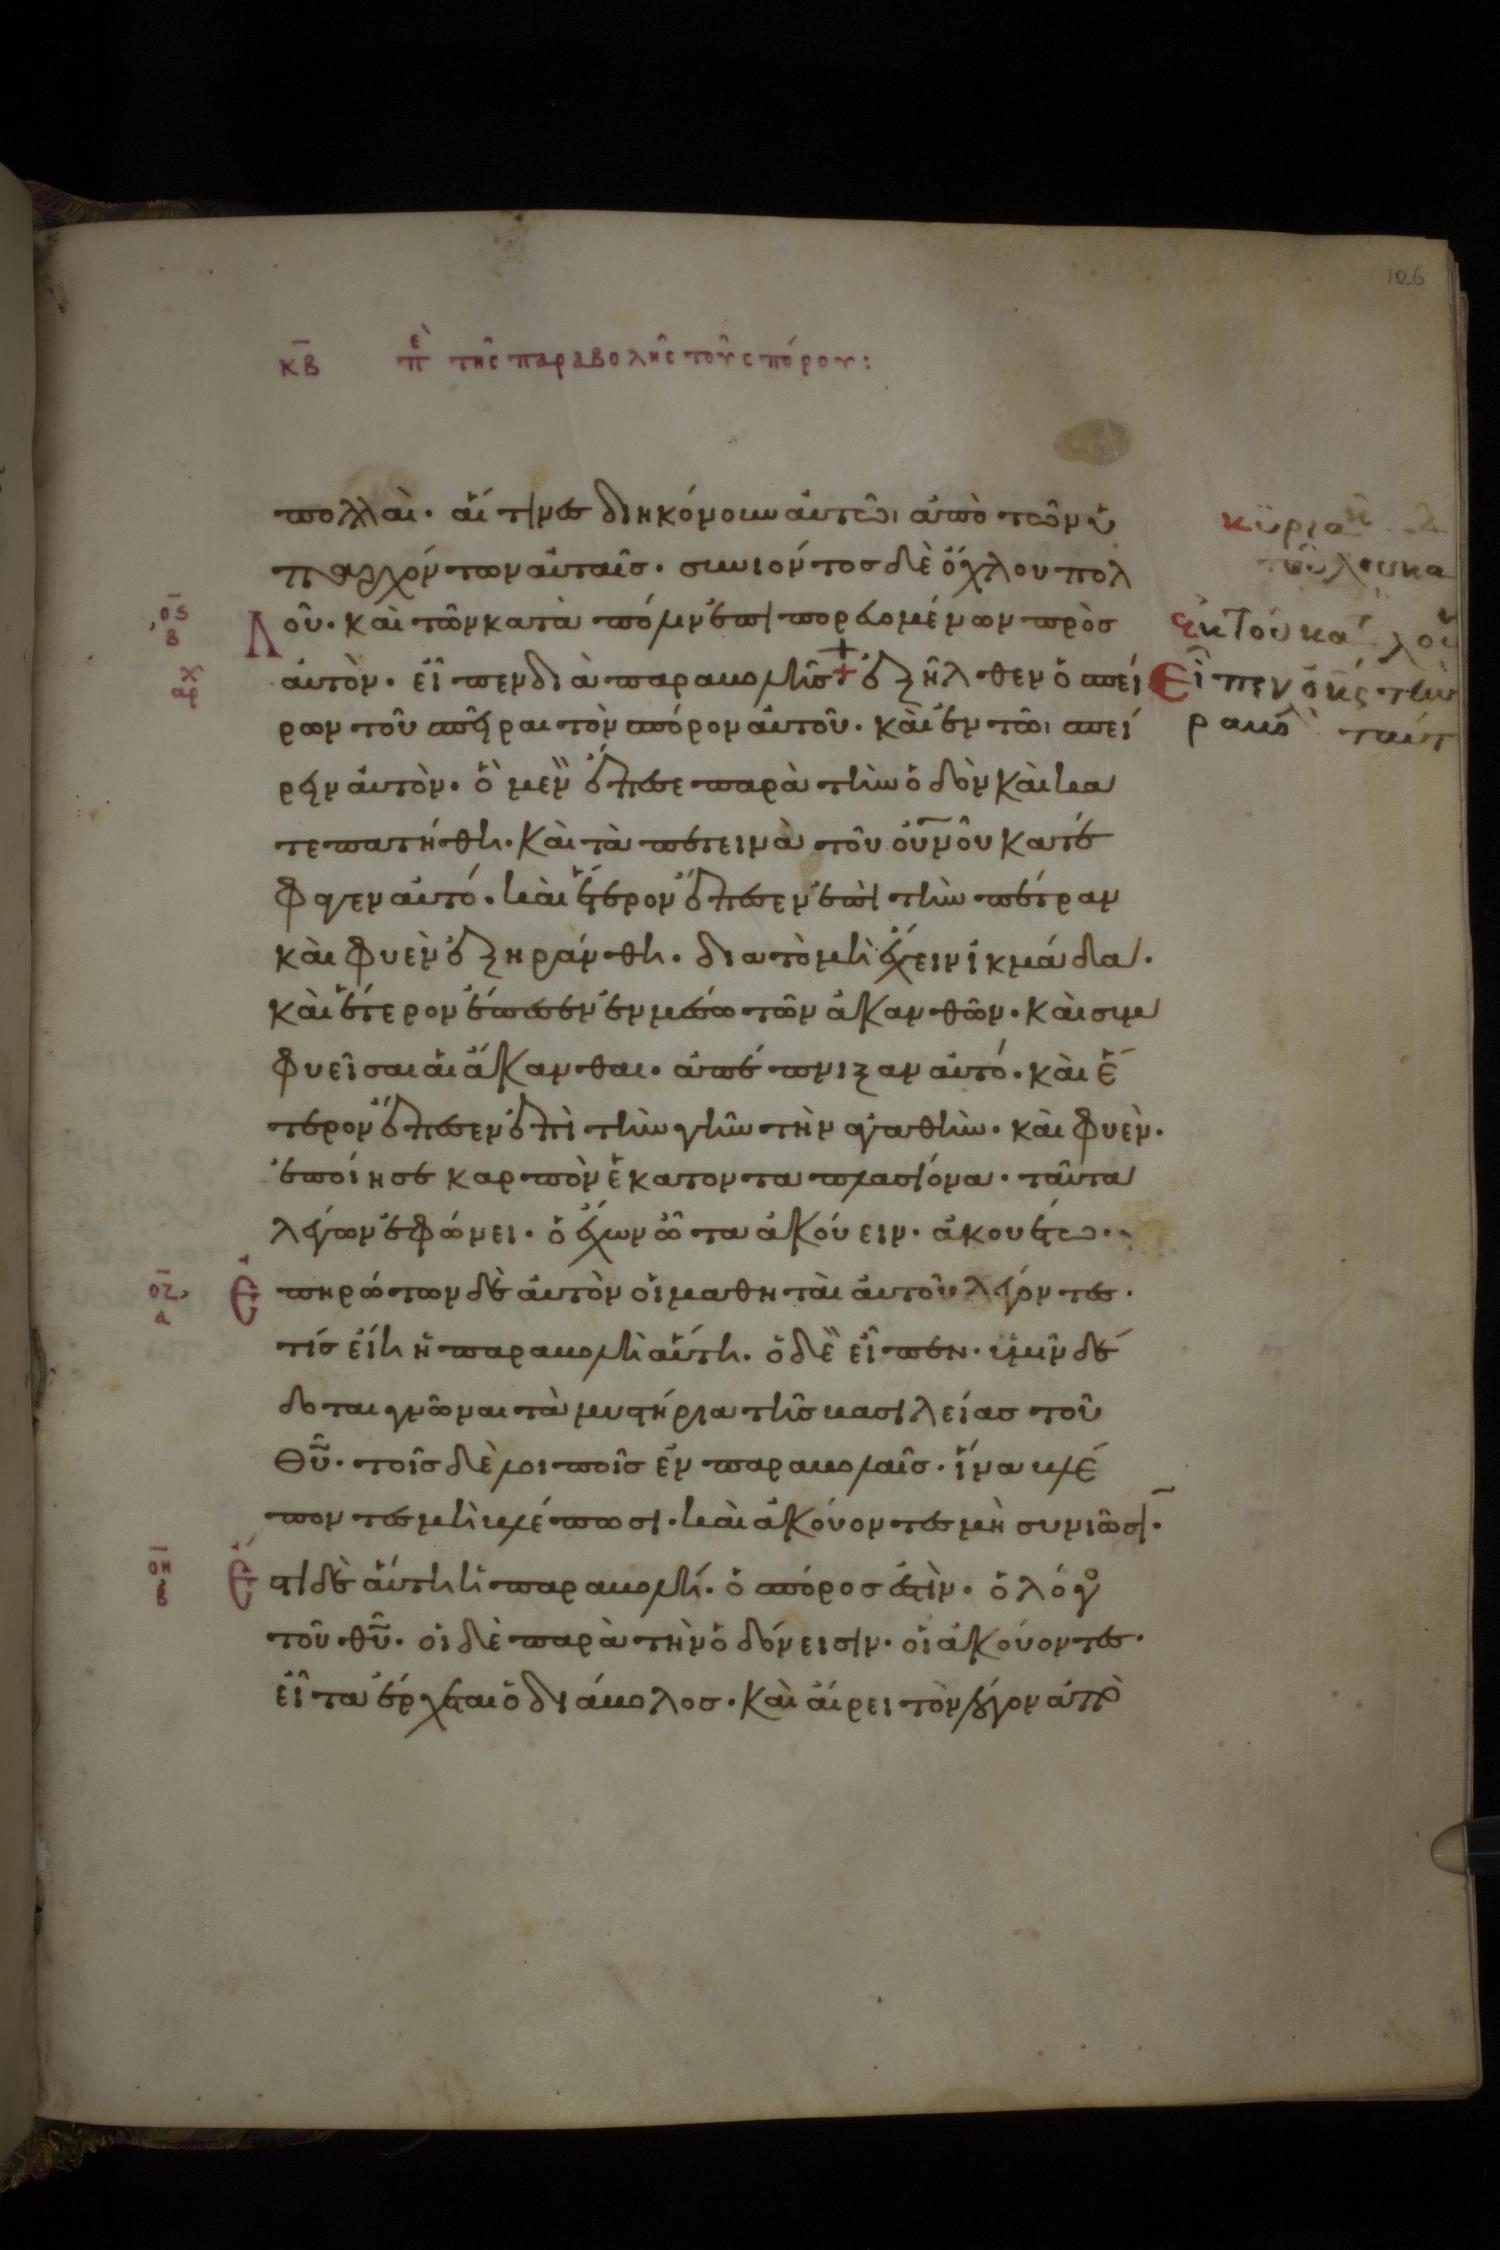 126
κβ πε τῆς παραβολῆς τοῦ σπόρου:
πολλαὶ· αἵτινες διηκόνουν αὐτῶι ἀπὸ τῶν ὑ
παρχόντων αὐταῖς· συνιόντος δὲ ὄχλου πολ
ος
β
λοῦ· καὶ τῶν κατὰ πόλιν ἐπιπορευομένων πρὸς
αρχ
αὐτὸν· εἶπεν διὰ παραβολῆς· + ἐξῆλθεν ὁ σπεί
ρων τοῦ σπεῖραι τὸν σπόρον αὐτοῦ· καὶ ἐν τῶι σπεί
ρειν αὐτὸν· ὃ μὲν ἔπεσε παρὰ τὴν ὁδὸν καὶ κα
τεπατήθη· καὶ τὰ πετεινὰ τοῦ οὐνοῦ κατέ
φαγεν αὐτό· καὶ ἕτερον ἔπεσεν ἐπὶ τὴν πέτραν
καὶ φυὲν ἐξηράνθη· διατὸ μὴ ἔχειν ἰκμάδα·
καὶ ἕτερον ἔπεσεν ἐν μέσω τῶν ἀκανθῶν· καὶ συμ
φυεῖσαι αἱ ἄκανθαι· ἀπέπνιξαν αὐτό· καὶ ἕ
τερον ἔπεσεν ἐπὶ τὴν γῆν τὴν ἀγαθὴν· καὶ φυὲν·
ἐποίησε καρπὸν ἑκατονταπλασίονα· ταῦτα
λέγων ἐφώνει· ὁ ἔχων ὦτα ἀκούειν· ἀκουέτω·
οζ
α
Ἐπηρώτων δὲ αὐτὸν οἱ μαθηταὶ αὐτοῦ λέγοντες·
τίς εἴη ἡ παραβολὴ αὕτη· ὁ δὲ εἶπεν· ὑμῖν δέ
δοται γνῶναι τὰ μυστήρια τῆς βασιλείας τοῦ
θυ· τοῖς δὲ λοιποῖς ἐν παραβολαῖς· ἵνα βλέ
ποντες μὴ βλέπωσι· καὶ ἀκούοντες μὴ συνιῶσι·
οη
β
Ἔστι δὲ αὕτη ἡ παραβολή· ὁ σπόρος ἐστὶν· ὁ λόγος
τοῦ θυ· οἱ δὲ παρὰ τὴν ὁδόν εἰσιν· οἱ ἀκούοντες·
εἶτα ἔρχεται ὁ διάβολος· καὶ αἴρει τὸν λόγον ἀπὸ
κυριακῆ
τοῦ λουκα
ἐκ τοῦ κατ λου
Εἶπεν ὁ κς τὴν
ραβο ταύτ